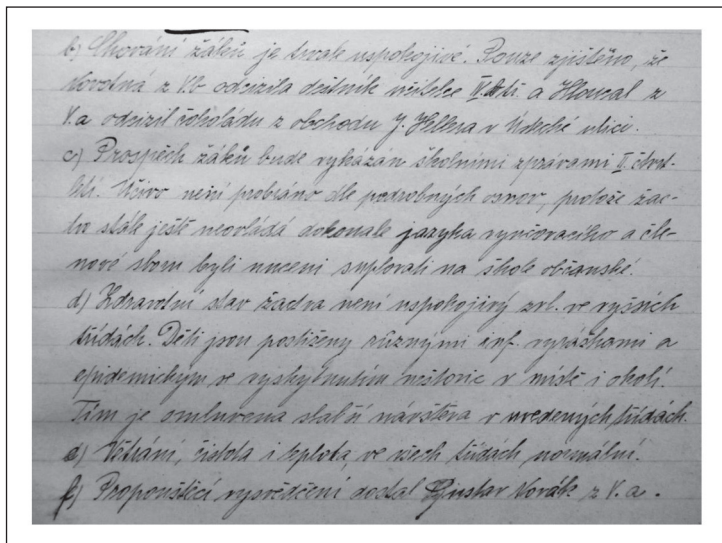 b) Chování žáků je dosud uspokojivé. Pouze zjištěno, že
Novotná z V.b odcizila deštník učitelce IV. tř. a Hloucal z
V.a odcizil čokoládu z obchodu J. Hellera v úzké ulici.
c) Prospěch žáků bude vykázán školními zprávami II. čtvrt-
letí. Učivo není probíráno dle podrobných osnov, protože žac-
tvo stále ještě neovládá dokonale jazyka vyučovacího a čle-
nové sboru byli nuceni suplovati na škole občanské.
d) Zdravotní stav žactva není uspokojivý zvl. ve vyšších
třídách. Děti jsou postiženy různými inf. vyrážkami a
epidemickým ve vyskytnutím neštovic v místě i okolí.
Tím je omluvena slabší návštěva v uvedených třídách.
e) Větrání, čistota i teplota ve všech třídách normální.
f) Propouštěcí vysvědčení dostal Gustav Novák z V. a.